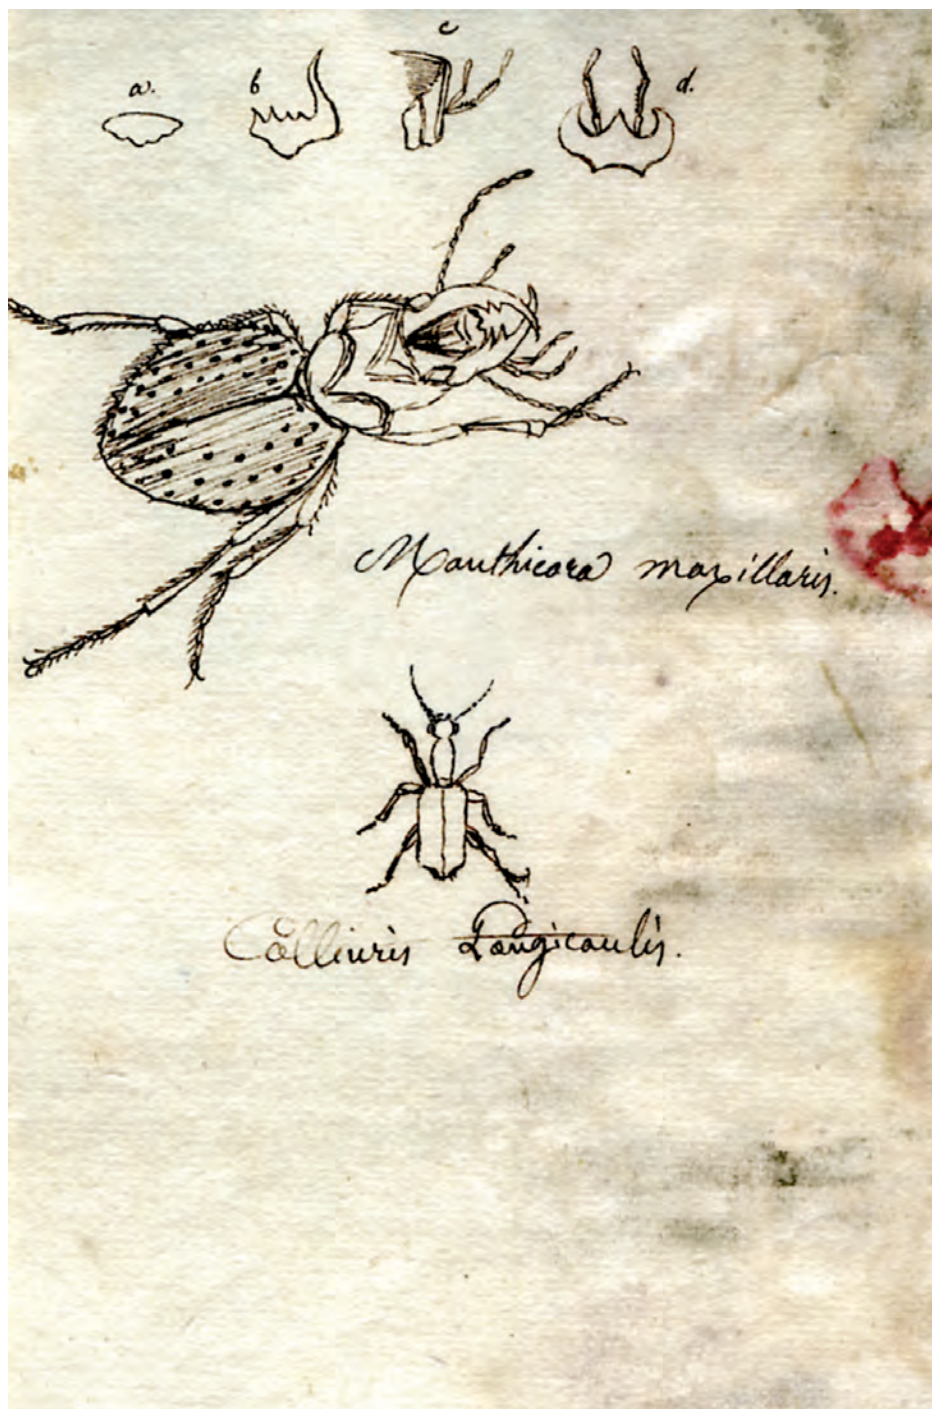 a. b c d.
Manthicora maxillaris.
Colliuris Longicoulis.